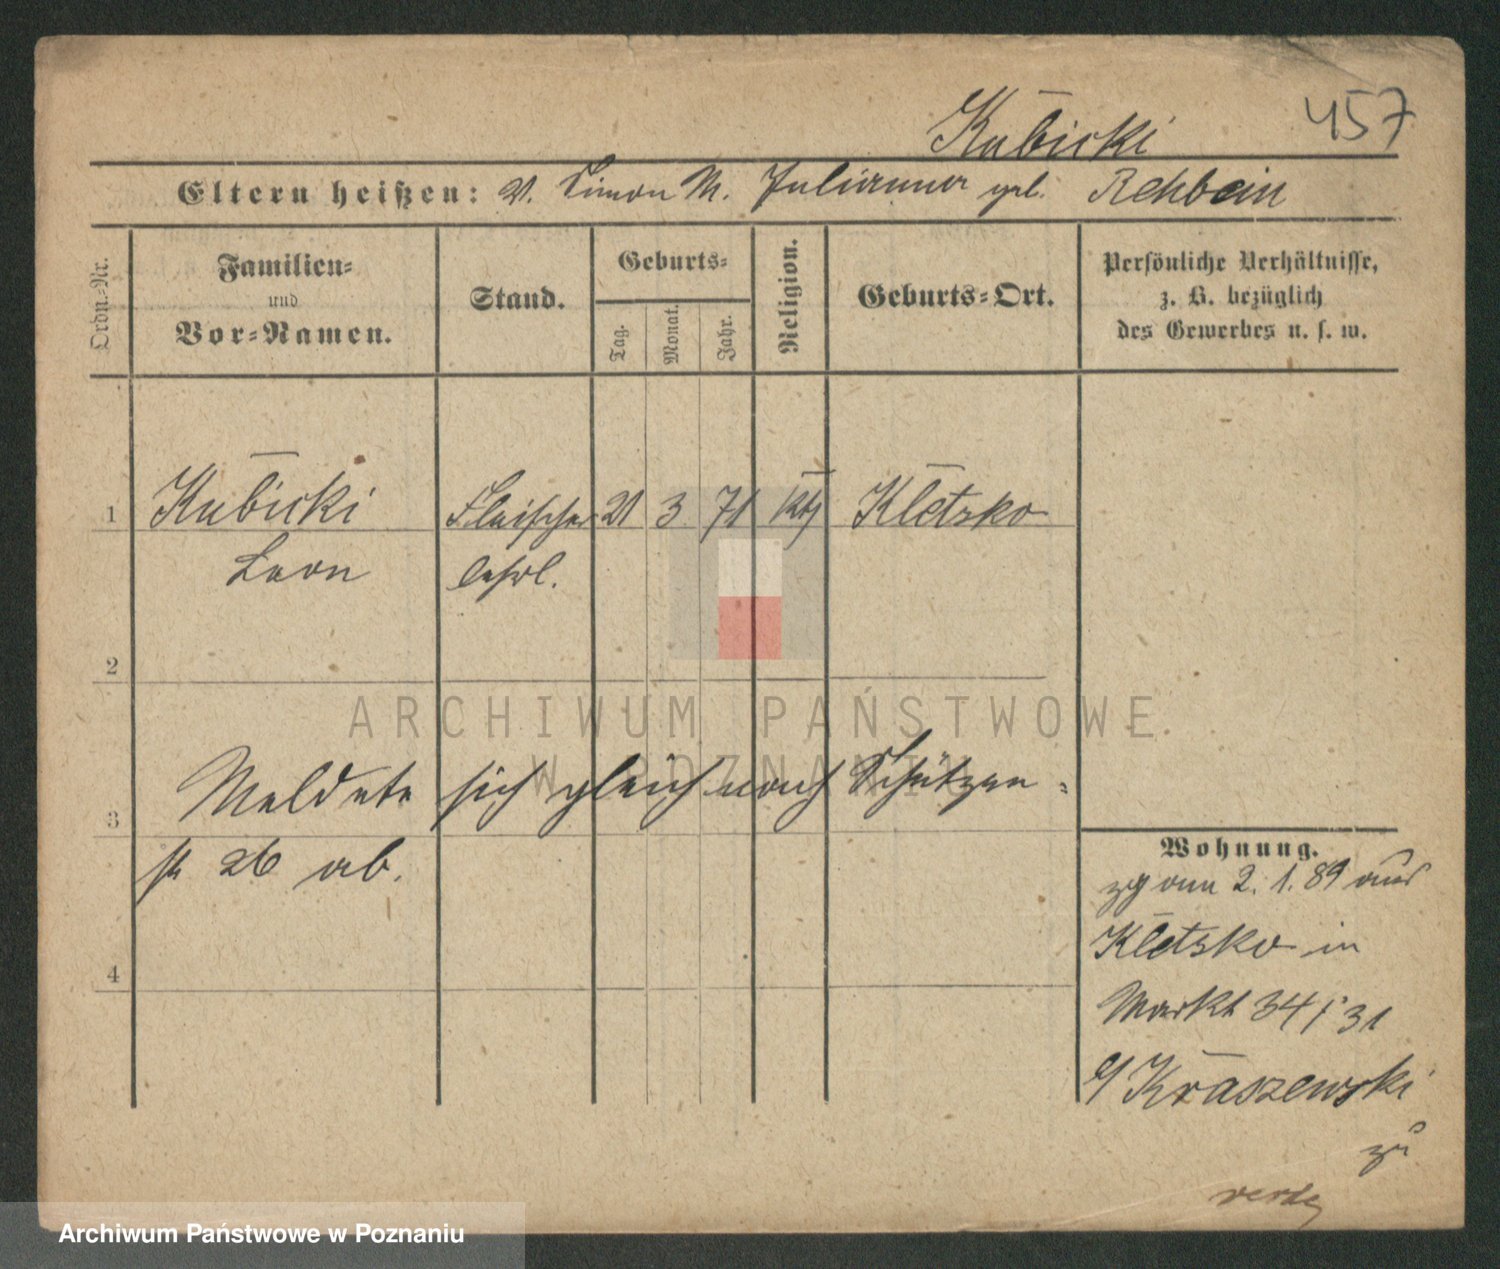 457
Kubicki
Eltern heißen: V. Simon M. Julianna geb. Rehbein
Ordn.-Nr.
Familien-
und
Vor-Namen.
Stand.
Geburts-
Tag.
Monat.
Jahr.
Religion.
Geburts-Ort.
Persönliche Verhältnisse,
z. B. bezüglich
des Gewerbes u. s. w.
1 Kubicki Fleischer 21 3 71 kth Kletsko
Leon lehrl.
2
ARCHIWUM PAŃSTWOWE
W POZNANIU
Meldete sich gleich nach Schützen-
3
str 26 ab.
4
Wohnung.
zg am 2. 1. 89 aus
Kletsko in
Markt 34 / 31
b/ Kraszewski
zu
Archiwum Państwowe w Poznaniu